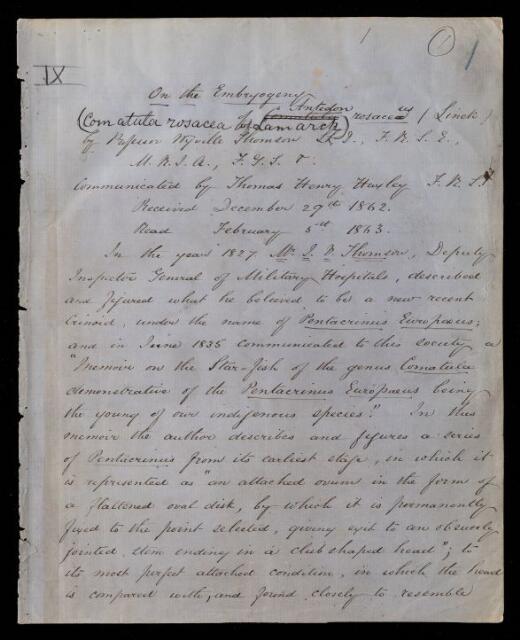 1 1 1
IX
On the Embryogeny
of Comatula Antedon rosaceus (Linck)
(Comatula rosacea of Lamarck)
by Professor Wyville Thomson LL.D., F.R.S.E.,
M.R.I.A., F.G.S. &c.
Communicated by Thomas Henry Huxley F.R.S.
Received December 29th 1862.
Read February 5th 1863.
In the year 1827 Mr J. V. Thomson, Deputy
Inspector General of Military Hospitals, described
and figured what he believed to be a new recent
Crinoid, under the name of Pentacrinus Europæus;
and in June 1835 communicated to this society a
"Memoir on the Star-fish of the genus Comatula
demonstrative of the Pentacrinus Europæus being
the young of our indigenous species." In this
memoir the author describes and figures a series
of Pentacrinus from its earliest stage, in which it
is represented as "an attached ovum in the form of
a flattened oval disk, by which it is permanently
fixed to the point selected, giving exit to an obscurely
jointed stem ending in a club shaped head"; to
its most perfect attached condition, in which the head
is compared with, and found closely to resemble